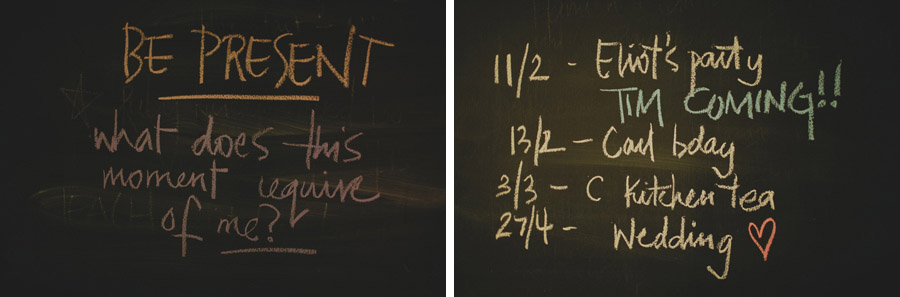 BE PRESENT
what does this
moment require
of me?
11/2 - Eliot's party
TIM COMING!!
13/2 - Carl bday
3/3 - C Kitchen tea
27/4 - Wedding